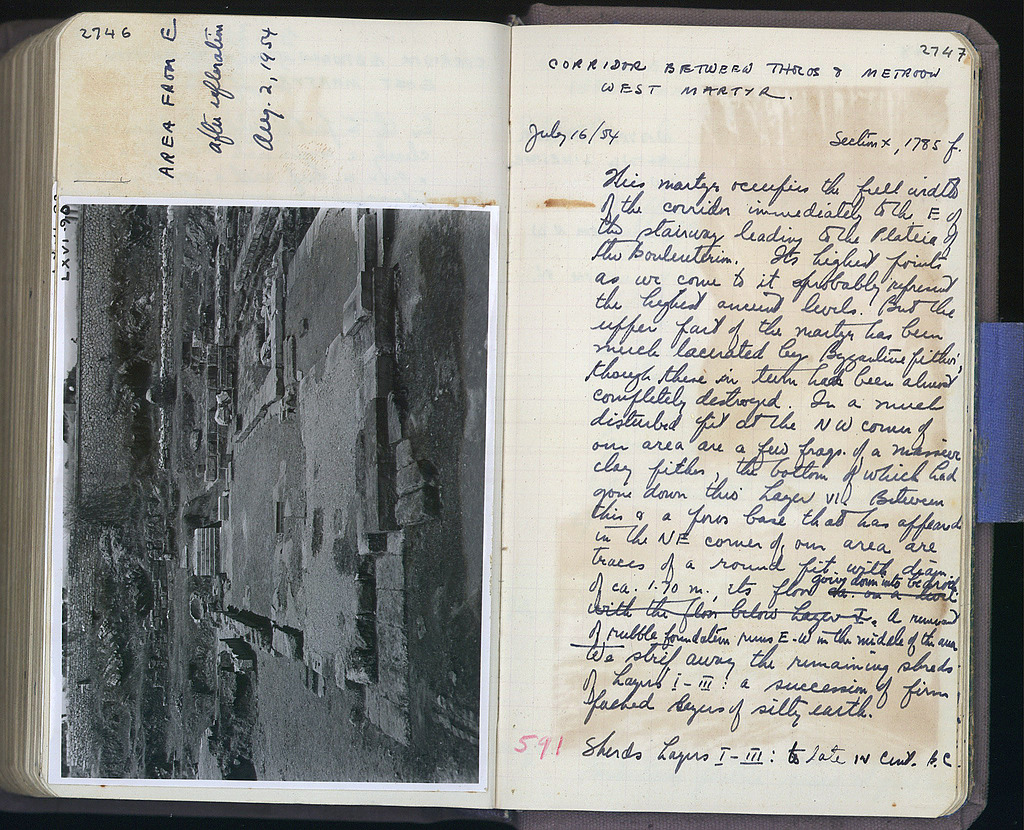 2746
AREA FROM E
after
Aug. 2, 1954
LXVI-90
2747
CORRIDOR BETWEEN THOLOS & METROON
WEST MARTYR.
July 16/54
Section X, 1785 f.
This martyr occupies the full width
of the corridor immediately to the E of
the stairway leading to the Plateia of
the Bouleuterion. Its highest points
as we come to it probably represent
the highest ancient levels. But the
upper part of the martyr has been
much lacerated by Byzantine pithoi,
though these in turn had been almost
completely destroyed. In a much
disturbed pit at the NW corner of
our area are a few frags. of a massive
clay pithos, the bottom of which had
gone down this Layer VI. Between
this & a poros base that has appeared
in the NE corner of our area are
traces of a round pit with diam
of ca. 1.70 m., its floor going down into bedrock
with the floor below Layer V. A remnant
of rubble foundation runs E-W in the middle of the area
We strip away the remaining shreds
of Layers I-III: a succession of firm,
packed layers of silty earth.
591 Sherds Layers I-III: to late IV cent. B.C.